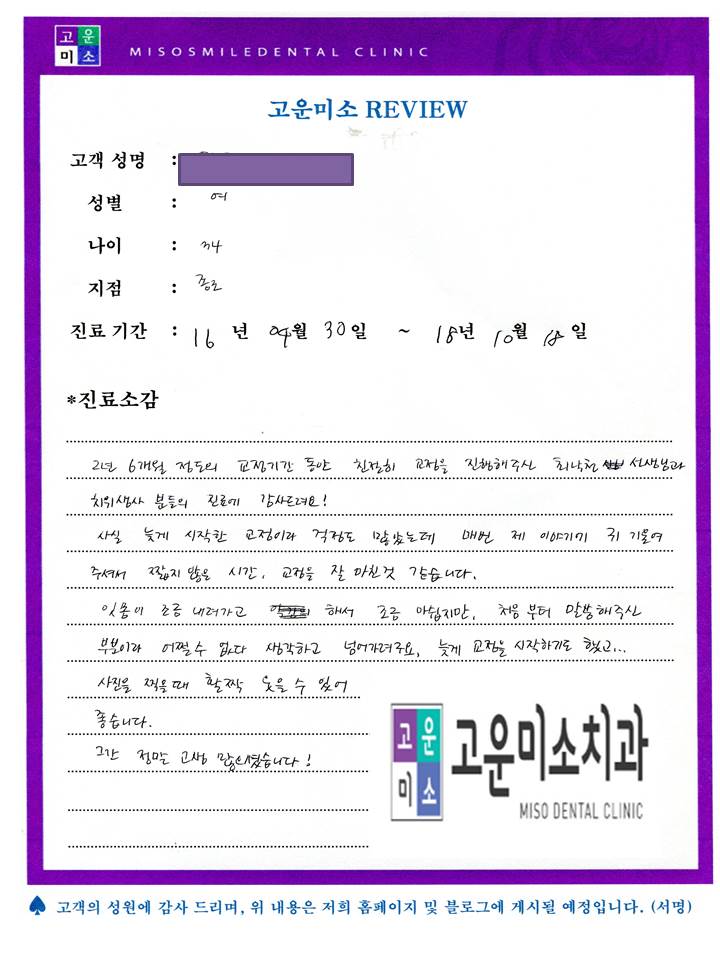 고운
미소
MISOSMILEDENTAL CLINIC
고운미소 REVIEW
고객 성명 :
성별 : 여
나이 : 34
지점 : 종로
진료 기간 : 16 년 04월 30일 ~ 18년 10월 18일
*진료소감
2년 6개월 정도의 교정기간 동안 친절히 교정을 진행해주신 최낙천 선생님과
치위생사 분들의 진료에 감사드려요!
사실 늦게 시작한 교정이라 걱정도 많았는데 매번 제 이야기에 귀 기울여
주셔서 짧지 않은 시간, 교정을 잘 마친것 같습니다.
잇몸이 조금 내려가고 해서 조금 아쉽지만, 처음부터 말씀해주신
부분이라 어쩔수 없다 생각하고 넘어가려구요, 늦게 교정을 시작하기도 했고...
사진을 찍을때 활짝 웃을 수 있어
좋습니다.
그간 정말 고생 많으셨습니다!
고운
미소
고운미소치과
MISO DENTAL CLINIC
♠ 고객의 성원에 감사 드리며, 위 내용은 저희 홈페이지 및 블로그에 게시될 예정입니다. (서명)